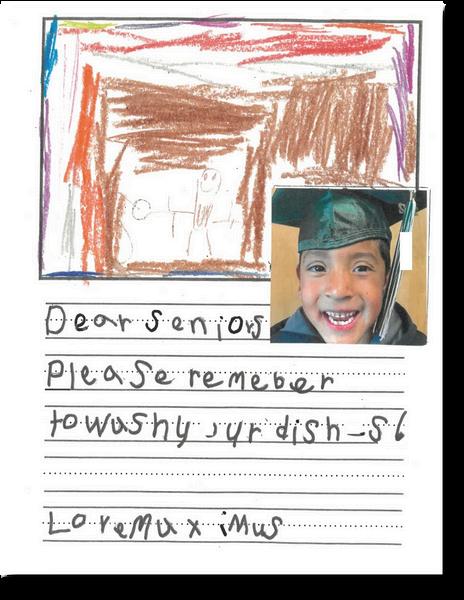 Dear seniors
please remeber
towushy yur dish-s
Lovemuximus